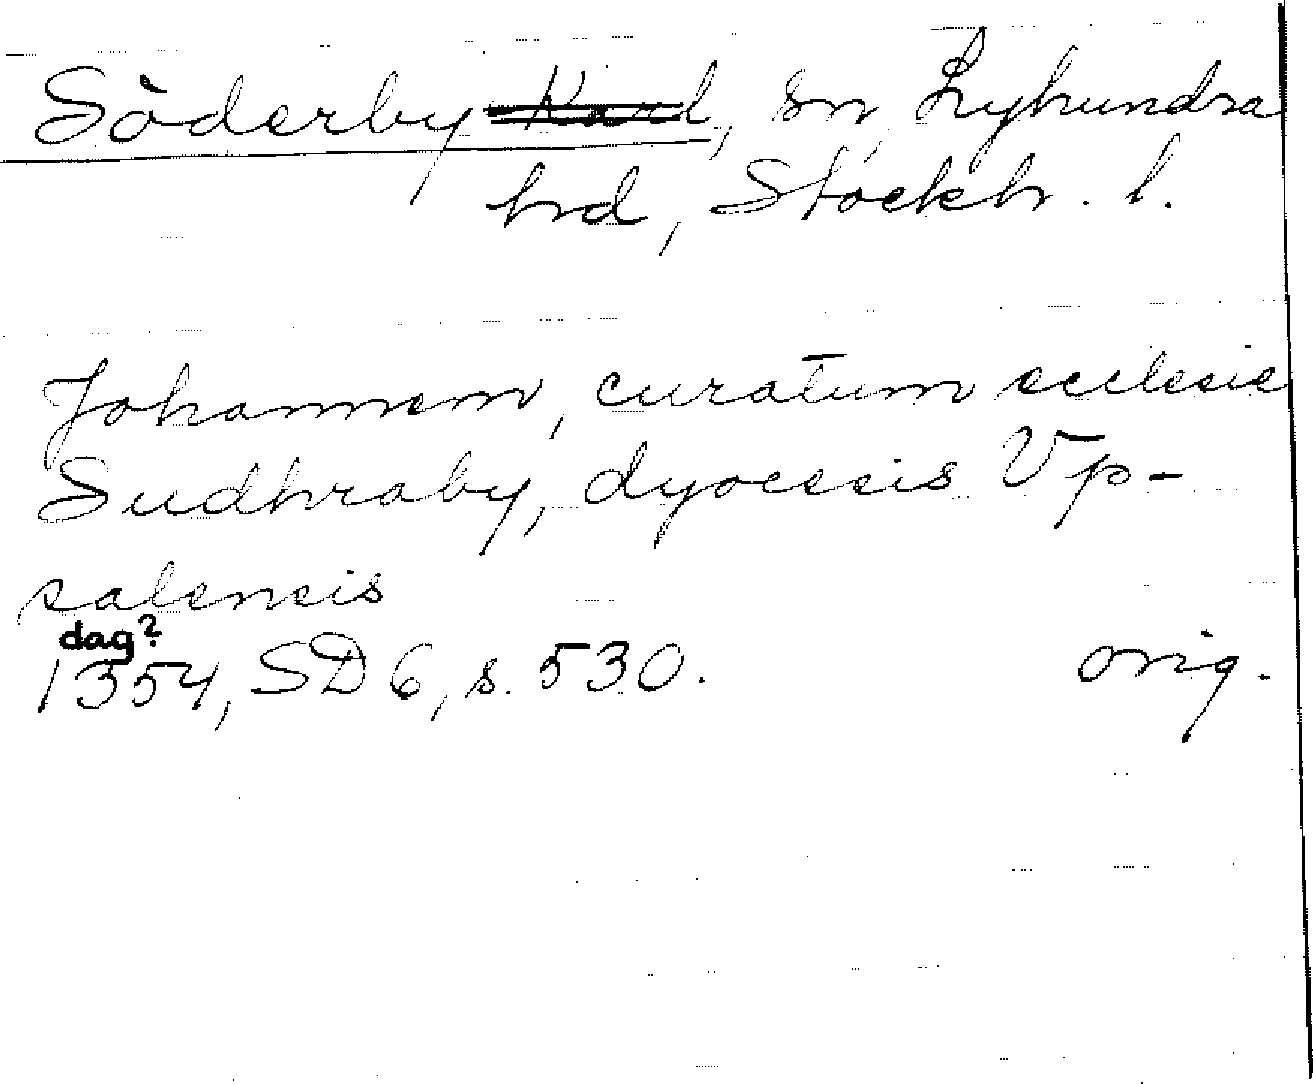 Söderby Karl, sn, Lyhundra
hd, Stockh. l.
Johannem, curatum ecclesie
Sudhraby, dyocesis Vp-
salensis
dag?
1354, SD 6, s. 530. orig.